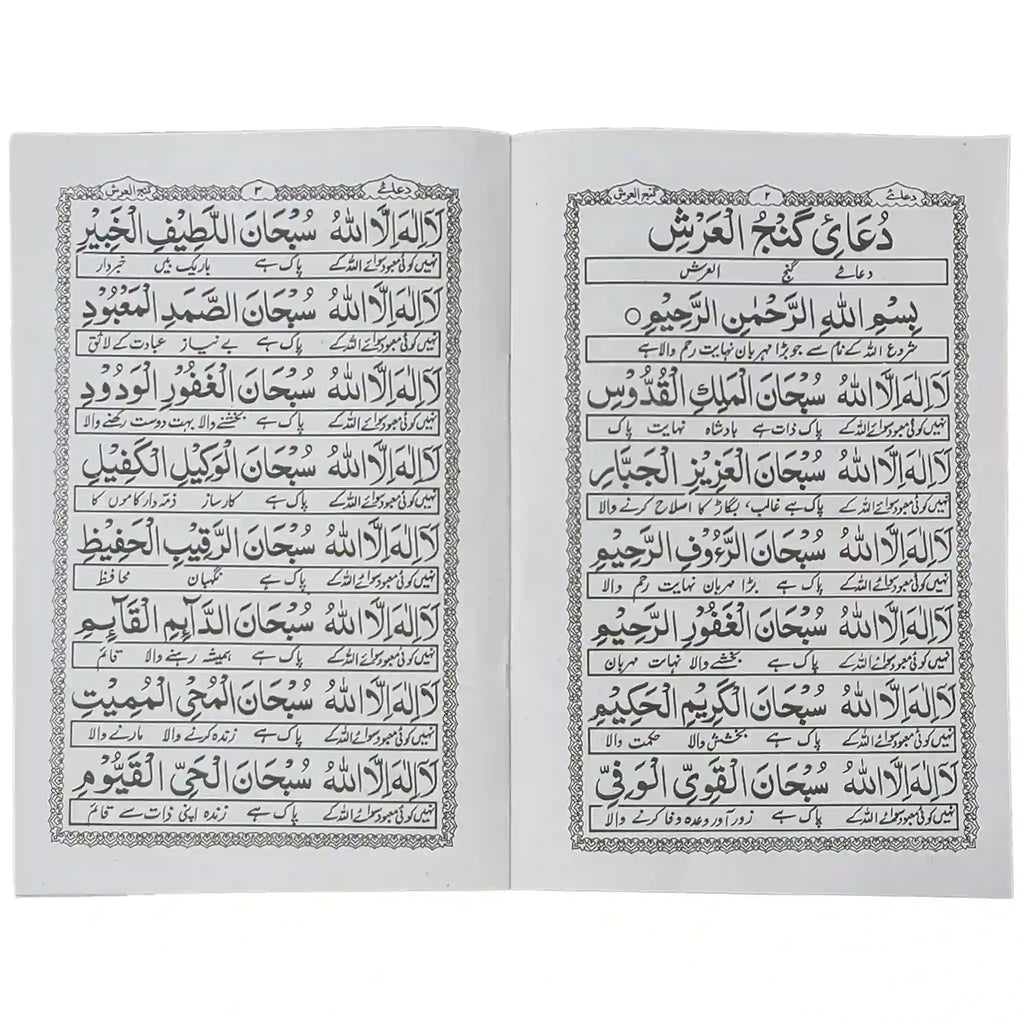 دعائے ٢ گنج العرش
دُعَائِ گَنْجُ الْعَرْشِ
دعائے گنج العرش
بِسْمِ اللهِ الرَّحْمٰنِ الرَّحِيْمِ ○
شروع اللہ کے نام سے جو بڑا مہربان نہایت رحم والا ہے
لَآ اِلٰهَ اِلَّا اللهُ سُبْحَانَ الْمَلِكِ الْقُدُّوْسِ
نہیں کوئی معبود سوائے اللہ کے پاک ذات ہے بادشاہ نہایت پاک
لَآ اِلٰهَ اِلَّا اللهُ سُبْحَانَ الْعَزِيْزِ الْجَبَّارِ
نہیں کوئی معبود سوائے اللہ کے پاک ہے غالب، بگاڑ کا اصلاح کرنے والا
لَآ اِلٰهَ اِلَّا اللهُ سُبْحَانَ الرَّءُوْفِ الرَّحِيْمِ
نہیں کوئی معبود سوائے اللہ کے پاک ہے بڑا مہربان نہایت رحم والا
لَآ اِلٰهَ اِلَّا اللهُ سُبْحَانَ الْغَفُوْرِ الرَّحِيْمِ
نہیں کوئی معبود سوائے اللہ کے پاک ہے بخشنے والا نہات مہربان
لَآ اِلٰهَ اِلَّا اللهُ سُبْحَانَ الْكَرِيْمِ الْحَكِيْمِ
نہیں کوئی معبود سوائے اللہ کے پاک ہے بخشش والا حکمت والا
لَآ اِلٰهَ اِلَّا اللهُ سُبْحَانَ الْقَوِيِّ الْوَفِيِّ
نہیں کوئی معبود سوائے اللہ کے پاک ہے زور آور وعدہ وفا کرنے والا
دعائے ٣ گنج العرش
لَآ اِلٰهَ اِلَّا اللهُ سُبْحَانَ اللَّطِيْفِ الْخَبِيْرِ
نہیں کوئی معبود سوائے اللہ کے پاک ہے باریک بیں خبردار
لَآ اِلٰهَ اِلَّا اللهُ سُبْحَانَ الصَّمَدِ الْمَعْبُوْدِ
نہیں کوئی معبود سوائے اللہ کے پاک ہے بے نیاز عبادت کے لائق
لَآ اِلٰهَ اِلَّا اللهُ سُبْحَانَ الْغَفُوْرِ الْوَدُوْدِ
نہیں کوئی معبود سوائے اللہ کے پاک ہے بخشنے والا بہت دوست رکھنے والا
لَآ اِلٰهَ اِلَّا اللهُ سُبْحَانَ الْوَكِيْلِ الْكَفِيْلِ
نہیں کوئی معبود سوائے اللہ کے پاک ہے کارساز ذمہ دار کاموں کا
لَآ اِلٰهَ اِلَّا اللهُ سُبْحَانَ الرَّقِيْبِ الْحَفِيْظِ
نہیں کوئی معبود سوائے اللہ کے پاک ہے نگہبان محافظ
لَآ اِلٰهَ اِلَّا اللهُ سُبْحَانَ الدَّآئِمِ الْقَآئِمِ
نہیں کوئی معبود سوائے اللہ کے پاک ہے ہمیشہ رہنے والا قائم
لَآ اِلٰهَ اِلَّا اللهُ سُبْحَانَ الْمُحْيِ الْمُمِيْتِ
نہیں کوئی معبود سوائے اللہ کے پاک ہے زندہ کرنے والا مارنے والا
لَآ اِلٰهَ اِلَّا اللهُ سُبْحَانَ الْحَيِّ الْقَيُّوْمِ
نہیں کوئی معبود سوائے اللہ کے پاک ہے زندہ اپنی ذات سے قائم